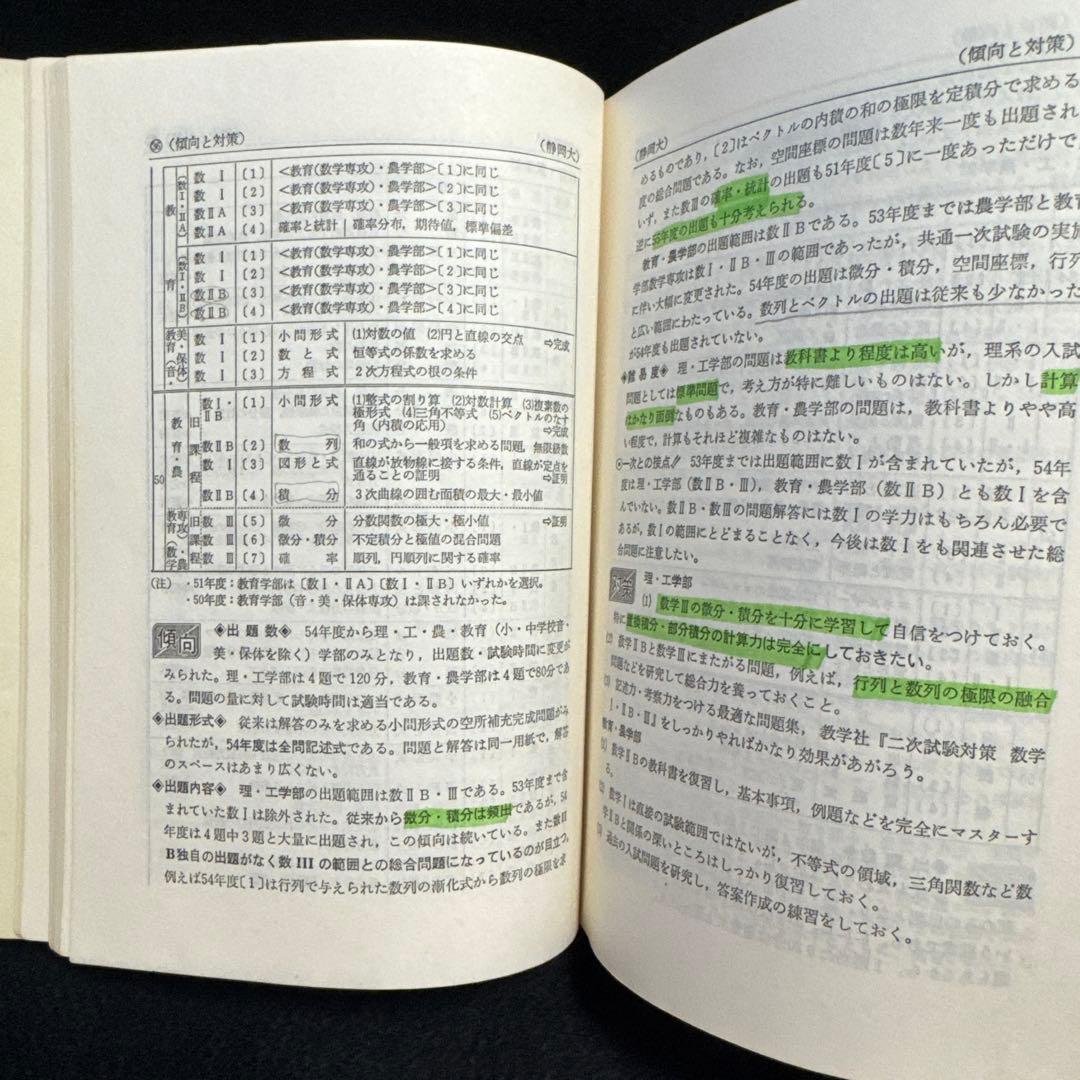 (傾向と対策)
(静岡大)
教 (数Ⅰ・ⅡA) 数Ⅰ 〔1〕 <教育(数学専攻)・農学部>〔1〕に同じ
数Ⅰ 〔2〕 <教育(数学専攻)・農学部>〔2〕に同じ
数ⅡA 〔3〕 <教育(数学専攻)・農学部>〔3〕に同じ
数ⅡA 〔4〕 確率と統計 確率分布, 期待値, 標準偏差
育 (数Ⅰ・ⅡB) 数Ⅰ 〔1〕 <教育(数学専攻)・農学部>〔1〕に同じ
数Ⅰ 〔2〕 <教育(数学専攻)・農学部>〔2〕に同じ
数ⅡB 〔3〕 <教育(数学専攻)・農学部>〔3〕に同じ
数ⅡB 〔4〕 <教育(数学専攻)・農学部>〔4〕に同じ
教育(音・美・保体) 数Ⅰ 〔1〕 小問形式 (1)対数の値 (2)円と直線の交点 ⇨完成
数Ⅰ 〔2〕 数と式 恒等式の係数を求める
数Ⅰ 〔3〕 方程式 2次方程式の根の条件
50 教育・農 旧課程 数Ⅰ・ⅡB 〔1〕 小問形式 (1)整式の割り算 (2)対数計算 (3)複素数の
極形式 (4)三角不等式 (5)ベクトルのなす
角(内積の応用) ⇨完成
数ⅡB 〔2〕 数列 和の式から一般項を求める問題, 無限級数
数Ⅰ 〔3〕 図形と式 直線が放物線に接する条件, 直線が定点を
通ることの証明 ⇨証明
数ⅡB 〔4〕 積分 3次曲線の囲む面積の最大・最小値
教育(数学専攻)・農 旧課程 数Ⅲ 〔5〕 微分 分数関数の極大・極小値 ⇨証明
数Ⅲ 〔6〕 微分・積分 不定積分と極値の混合問題
数Ⅲ 〔7〕 確率 順列, 円順列に関する確率
(注) ・51年度:教育学部は〔数Ⅰ・ⅡA〕〔数Ⅰ・ⅡB〕いずれかを選択。
・50年度:教育学部(音・美・保体専攻)は課されなかった。
傾向 ◈出題数◈ 54年度から理・工・農・教育(小・中学校音・
美・保体を除く)学部のみとなり, 出題数・試験時間に変更が
みられた。理・工学部は4題で120分, 教育・農学部は4題で80分であ
る。問題の量に対して試験時間は適当である。
◈出題形式◈ 従来は解答のみを求める小問形式の空所補充完成問題がみ
られたが, 54年度は全問記述式である。問題と解答は同一用紙で, 解答
のスペースはあまり広くない。
◈出題内容◈ 理・工学部の出題範囲は数ⅡB・Ⅲである。53年度まで含
まれていた数Ⅰは除外された。従来から微分・積分は頻出であるが, 54
年度は4題中3題と大量に出題され, この傾向は続いている。また数Ⅱ
B独自の出題がなく数Ⅲの範囲との総合問題になっているのが目立つ。
例えば54年度〔1〕は行列で与えられた数列の漸化式から数列の極限を求
(静岡大)
(傾向と対策)
めるものであり,〔2〕はベクトルの内積の和の極限を定積分で求める
度の総合問題である。なお, 空間座標の問題は数年来一度も出題され
いず, また数Ⅲの確率・統計の出題も51年度〔5〕に一度あっただけで
逆に55年度の出題も十分考えられる。
教育・農学部の出題範囲は数ⅡBである。53年度までは農学部と教育
学部数学専攻は数Ⅰ・ⅡB・Ⅲの範囲であったが, 共通一次試験の実施
に伴い大幅に変更された。54年度の出題は微分・積分, 空間座標, 行列
と広い範囲にわたっている。数列とベクトルの出題は従来も少なかった
が54年度も出題されていない。
◈難易度◈ 理・工学部の問題は教科書より程度は高いが, 理系の入試
問題としては標準問題で, 考え方が特に難しいものはない。しかし計算
はかなり面倒なものもある。教育・農学部の問題は, 教科書よりやや高
い程度で, 計算もそれほど複雑なものはない。
◎一次との接点!! 53年度までは出題範囲に数Ⅰが含まれていたが, 54年
度は理・工学部(数ⅡB・Ⅲ), 教育・農学部(数ⅡB)とも数Ⅰを含
んでいない。数ⅡB・数Ⅲの問題解答には数Ⅰの学力はもちろん必要で
あるが, 数Ⅰの範囲にとどまることなく, 今後は数Ⅰをも関連させた総
合問題に注意したい。
対策 理・工学部
(1) 数学Ⅲの微分・積分を十分に学習して自信をつけておく。
特に置換積分・部分積分の計算力は完全にしておきたい。
(2) 数学ⅡBと数学Ⅲにまたがる問題, 例えば, 行列と数列の極限の融合
問題などを研究して総合力を養っておくこと。
(3) 記述力・考察力をつける最適な問題集, 教学社『二次試験対策 数学
Ⅰ・ⅡB・Ⅲ』をしっかりやればかなり効果があがろう。
教育・農学部
(1) 数学ⅡBの教科書を復習し, 基本事項, 例題などを完全にマスターす
る。
(2) 数学Ⅰは直接の試験範囲ではないが, 不等式の領域, 三角関数など数
学ⅡBと関係の深いところはしっかり復習しておく。
(3) 過去の入試問題を研究し, 答案作成の練習をしておく。